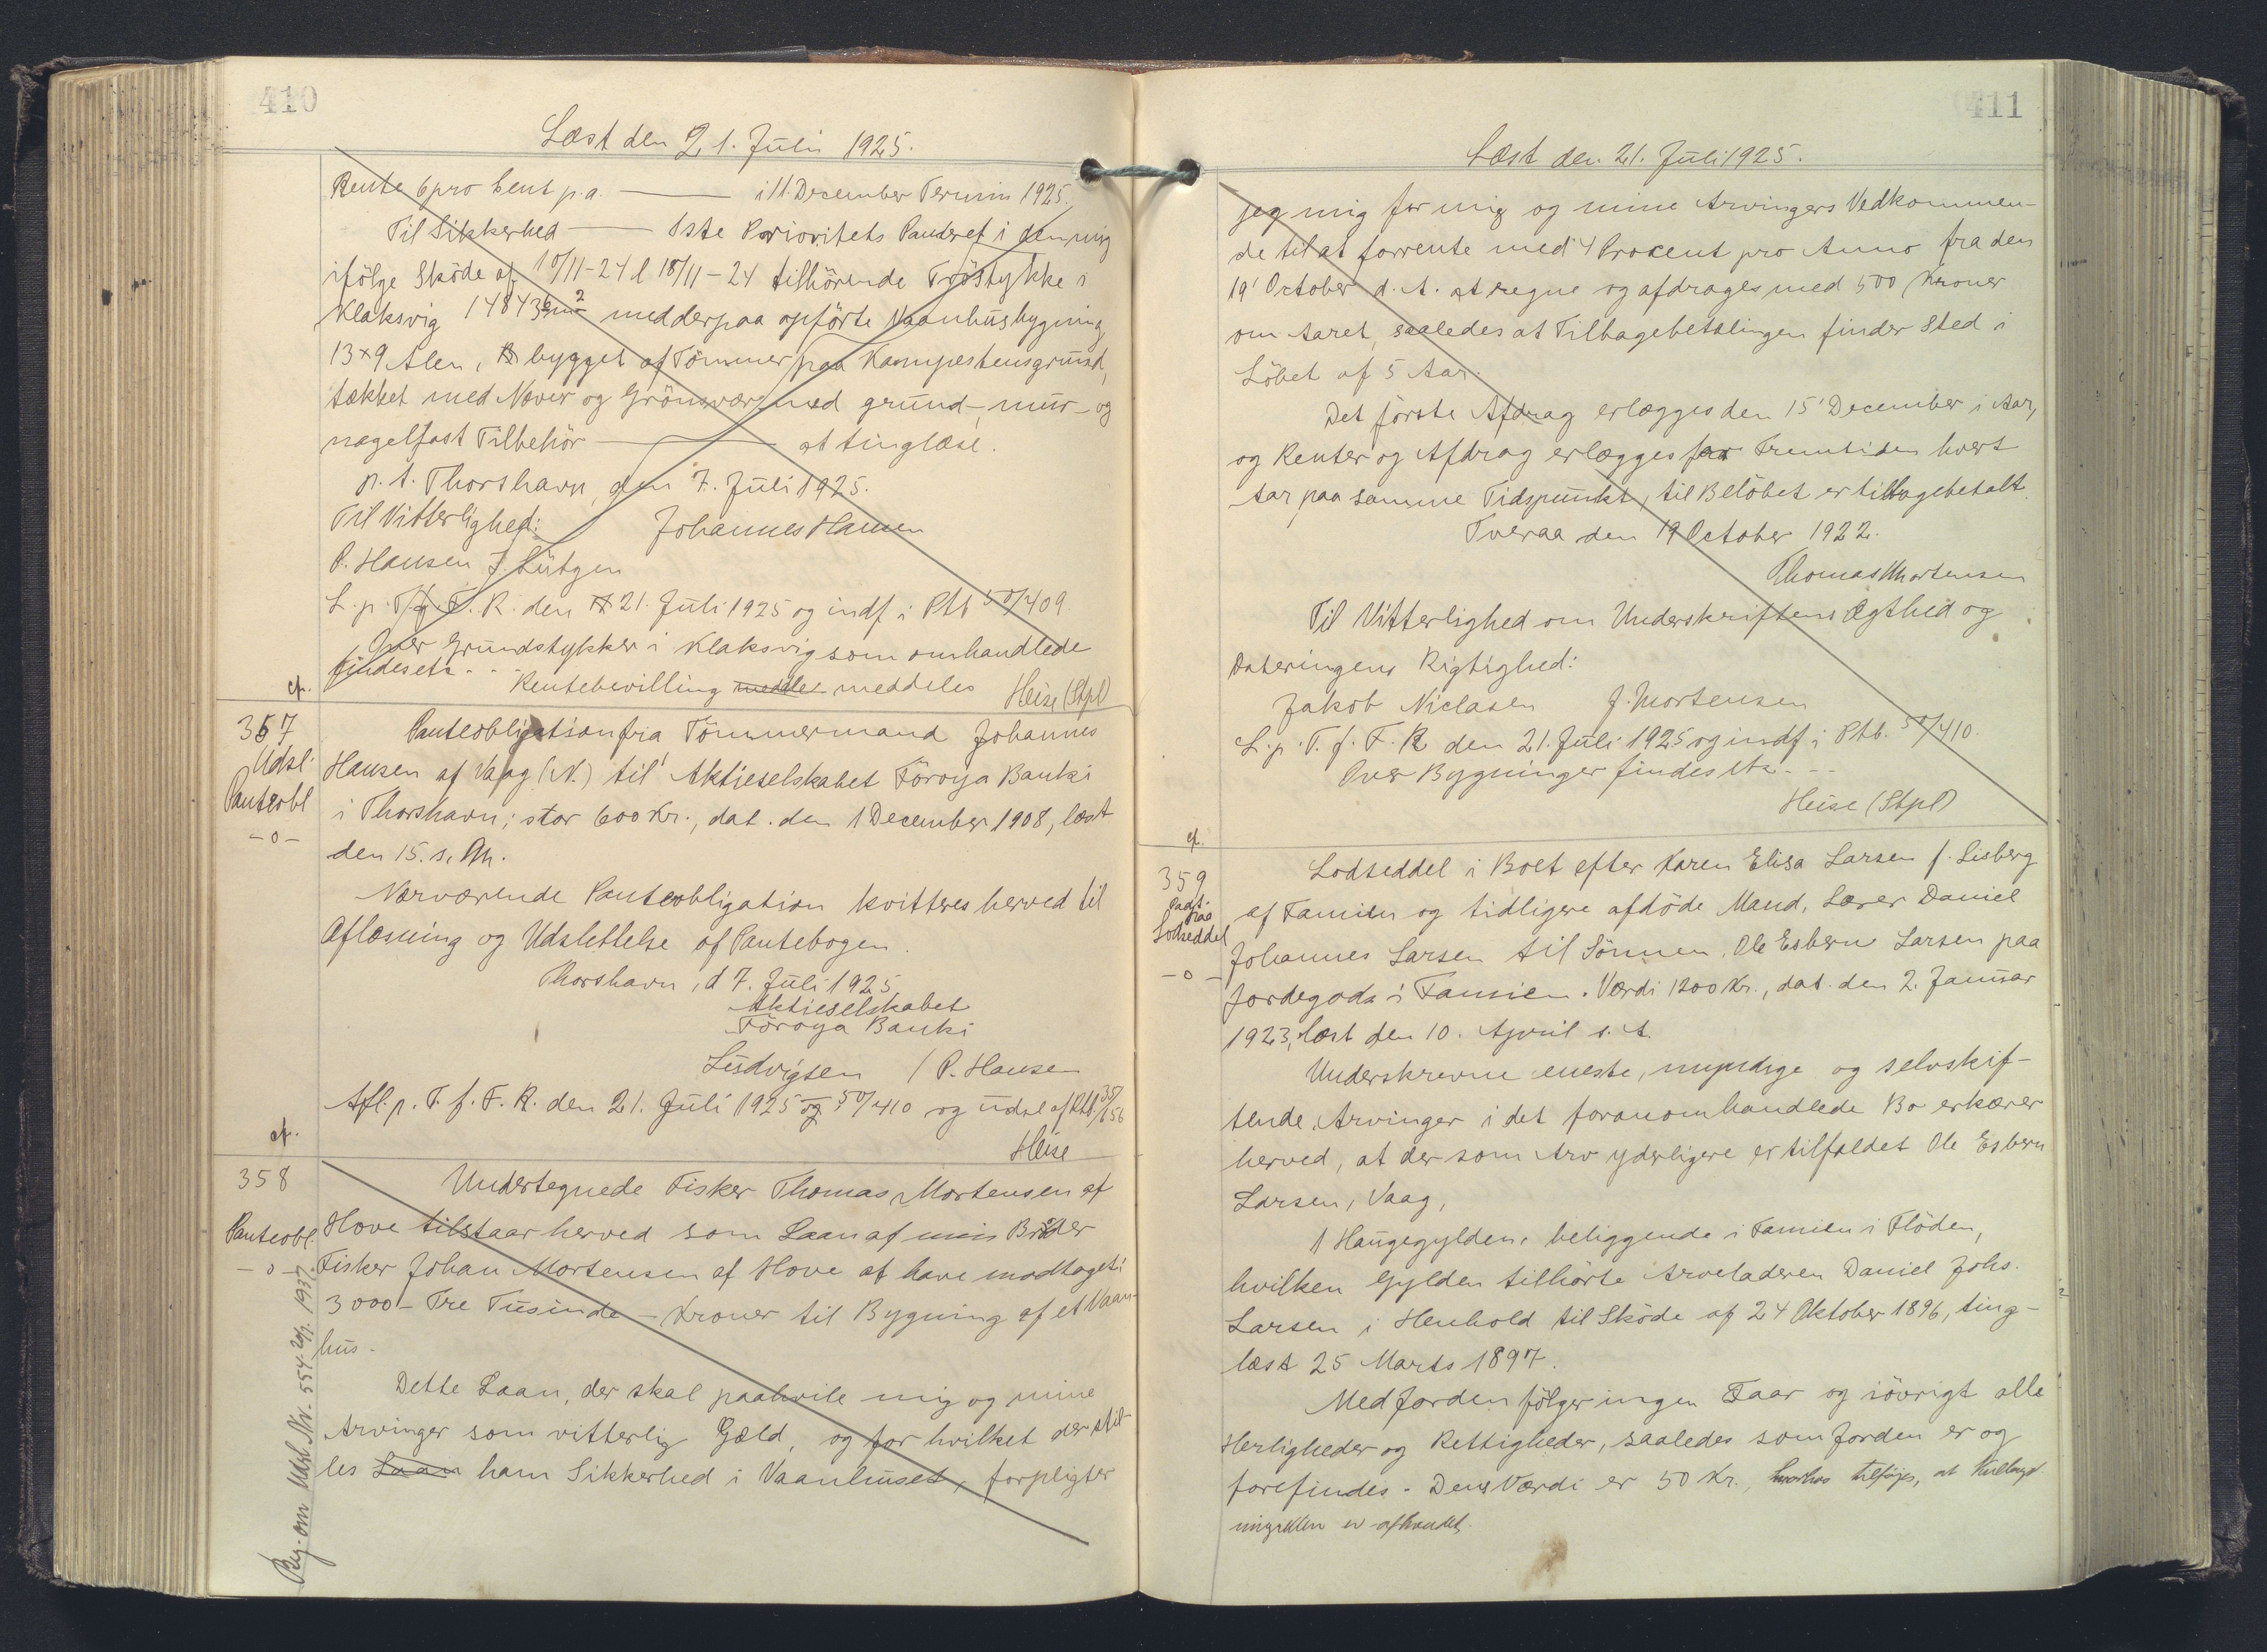 410
Læst den 21. Juli 1925.
Rente 6 pro Cent p.a. — i 11 December Termin 1925.
Til Sikkerhed — 1ste Prioritets Panderet i den mig
ifölge Sköde af 10/11-24 l 18/11-24 tilhörende Tröstykke i
Klaksvig med derpaa opförte Vaanhusbygning
13×9 Alen, bygget af Tömmer paa Kampestensgrund,
tækket med Næver og Grönsvær med grund-, mur- og
nagelfast Tilbehör — at tinglæse.
p.t. Thorshavn, den 7. Juli 1925.
Til Vitterlighed: Johannes Hansen
P. Hansen J. Lützen
L.p.T.f.F.R. den 21. Juli 1925 og indf. i Ptb 50/409.
Over Grundstykker i Klaksvig som omhandlede
findes etc. - -
Rentebevilling meddeles Heise (Stpl)
cf.
357
Udsl.
Panteobl
-o-
Panteobligation fra Tömmermand Johannes
Hansen af Vaag (N.) til Aktieselskabet Föroya Banki
i Thorshavn; stor 600 Kr., dat. den 1 December 1908, læst
den 15. s. M.
Nærværende Panteobligation kvitteres herved til
Aflæsning og Udslettelse af Pantebogen.
Thorshavn, d 7. Juli 1925
Aktieselskabet
Föroya Banki
Ludvigsen / P. Hansen
Afl. p. T. f. F. R. den 21. Juli 1925 og 50/410 og udsl af Ptb 35/656
Heise
cf.
358
Panteobl.
-o-
Reg. om Udsl. Nr. 554 1937.
Undertegnede Fisker Thomas Mortensen af
Hove tilstaar herved som Laan af min Broder
Fisker Johan Mortensen af Hove at have modtaget:
3000 - Tre Tusinde - Kroner til Bygning af et Vaan-
hus.
Dette Laan, der skal paahvile mig og mine
Arvinger som vitterlig Gæld, og for hvilket der stil-
les Laan ham Sikkerhed i Vaanhuset, forpligter
411
Læst den 21. Juli 1925.
jeg mig for mig og mine Arvingers Vedkommen-
de til at forrente med 4 Procent pro Anno fra den
19' October d. A. at regne og afdrages med 500 Kroner
om Aaret, saaledes at Tilbagebetalingen finder Sted i
Löbet af 5 Aar.
Det förste Afdrag erlægges den 15' December i Aar,
og Renter og Afdrag erlægges for Fremtiden hvert
Aar paa samme Tidspunkt, til Belöbet er tilbagebetalt.
Tveraa den 19 October 1922.
Thomas Mortensen
Til Vitterlighed om Underskriftens Ægthed og
Dateringens Rigtighed:
Jakob Niclasen J. Mortensen
L. p. T. f. F. R den 21. Juli 1925 og indf. i Ptb. 50/410.
Over Bygninger findes etc. - -
Heise (Stpl)
cf.
359
Lodseddel
-o-
Lodseddel i Boet efter Karen Elisa Larsen f. Lisberg
af Famien og tidligere afdöde Mand, Lærer Daniel
Johannes Larsen til Sönnen, Ole Esbern Larsen paa
Jordegods i Famien. Værdi 1200 Kr., dat. den 2. Januar
1923, læst den 10. April s. A.
Underskrevne eneste, myndige og selvskif-
tende Arvinger i det foranomhandlede Bo erkærer
herved, at der som Arv yderligere er tilfaldet Ole Esbern
Larsen, Vaag,
1 Haugegylden, beliggende i Famien i Flöden,
hvilken Gylden tilhörte Arveladeren Daniel Johs.
Larsen i Henhold til Sköde af 24 Oktober 1896, ting-
læst 25 Marts 1897.
Med Jorden fölger ingen Faar og iövrigt alle
Herligheder og Rettigheder, saaledes som Jorden er og
forefindes. Dens Værdi er 50 Kr., hvorhos tilföjes, at
er afhændet.